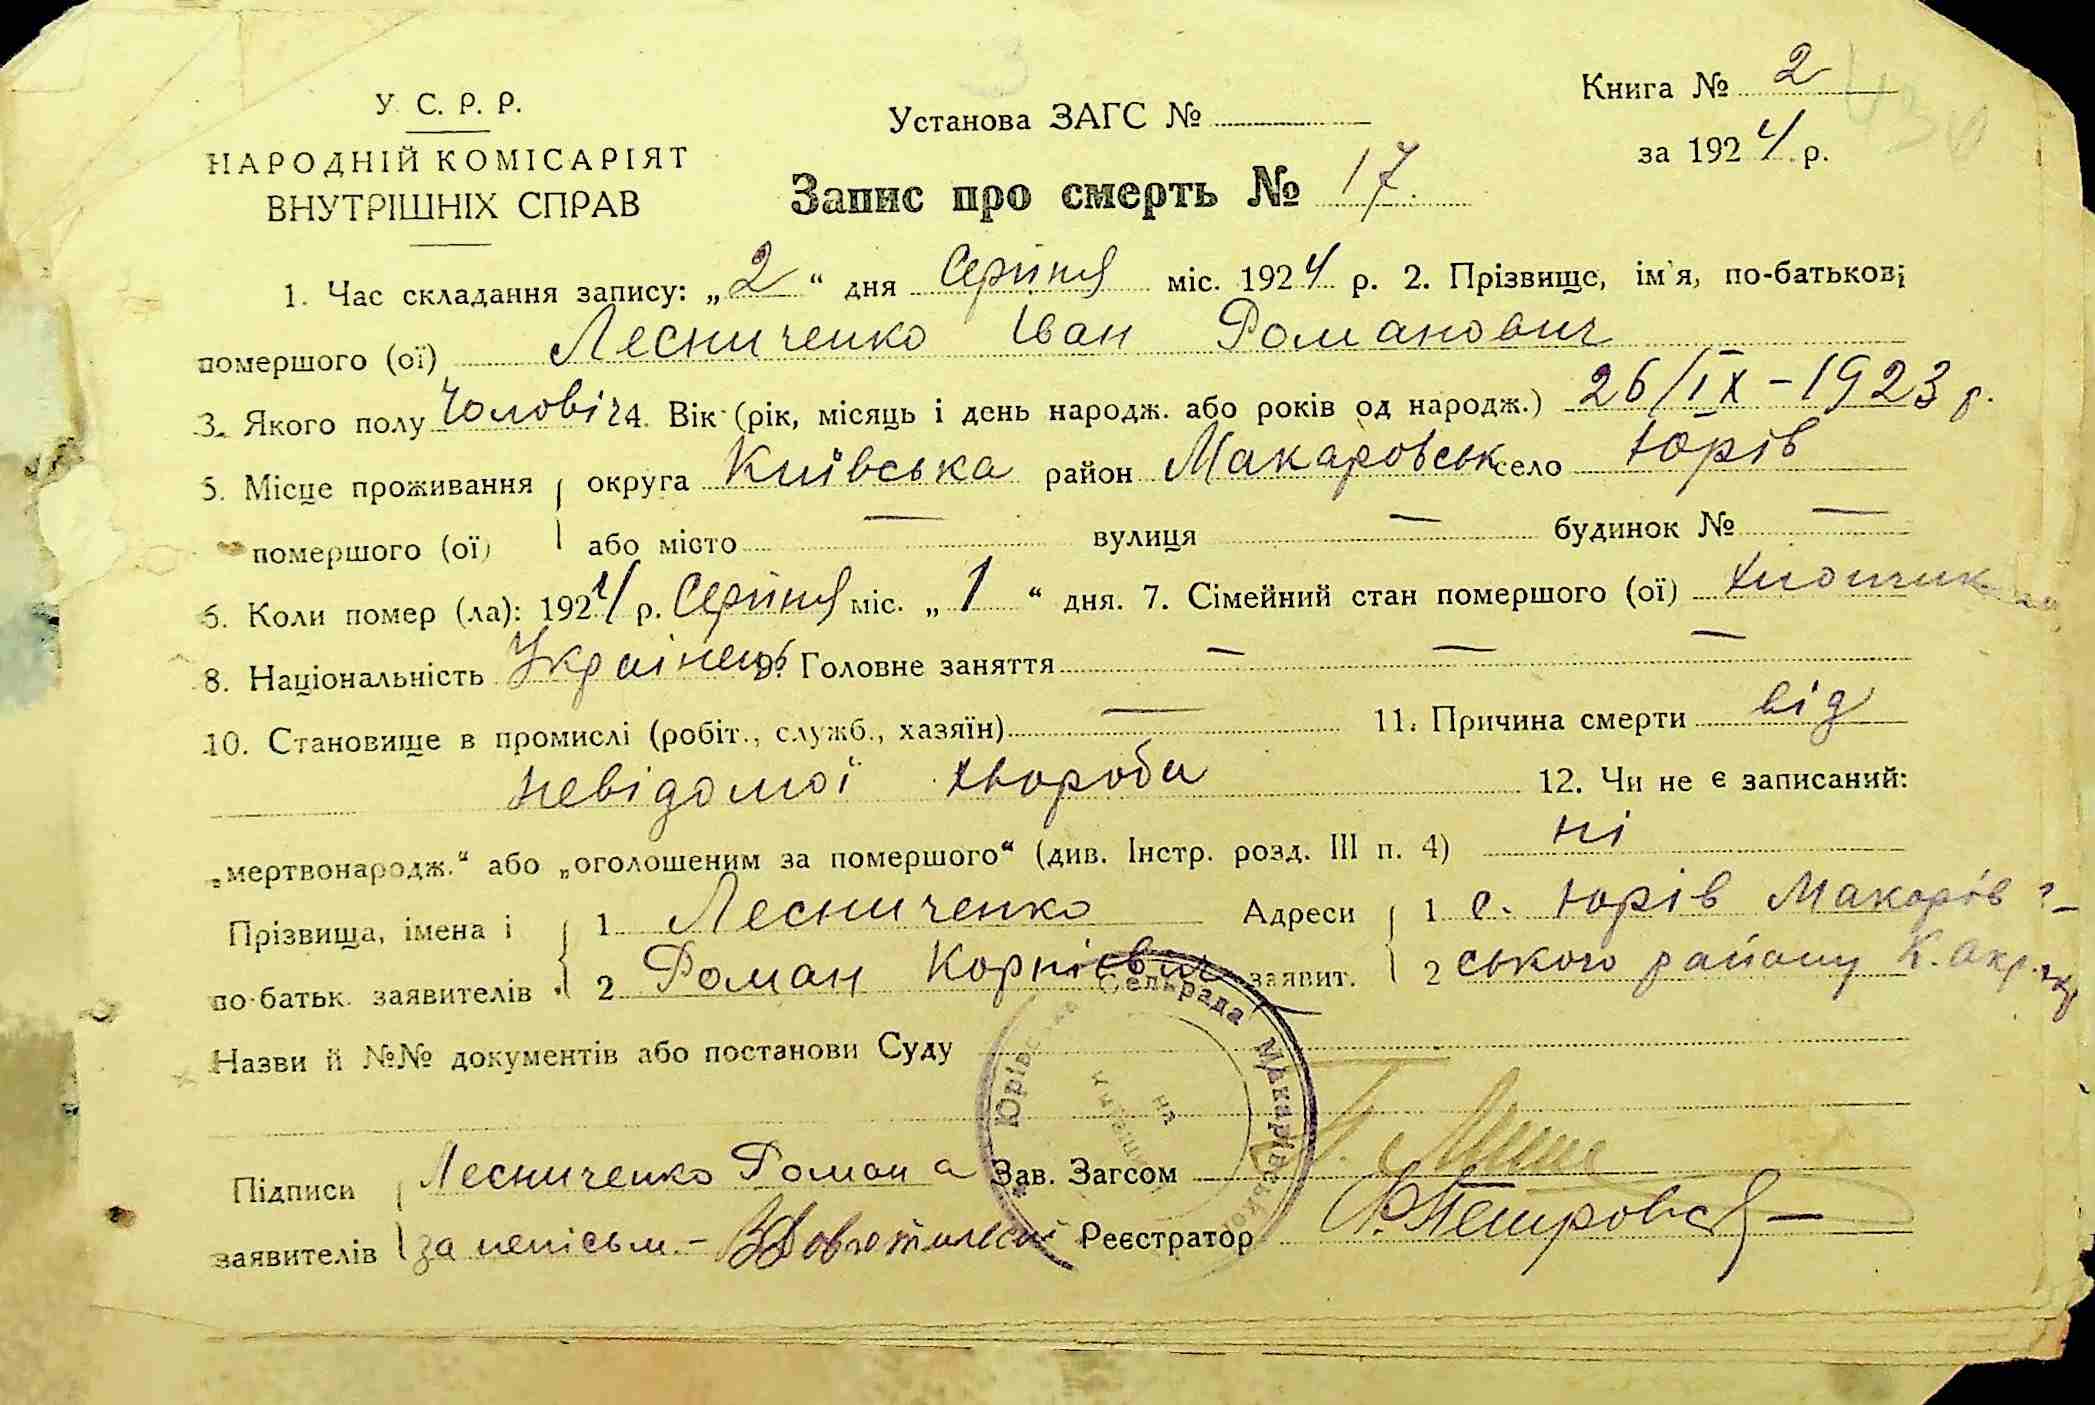 У. С. Р. Р.
НАРОДНІЙ КОМІСАРІЯТ
ВНУТРІШНІХ СПРАВ
Установа ЗАГС №
Книга № 2
за 1924 р.
Запис про смерть № 17.
1. Час складання запису: „2“ дня Серпня міс. 1924 р. 2. Прізвище, ім'я, по-батькові
помершого (ої) Лесниченко Іван Романович
3. Якого полу Чоловіч 4. Вік (рік, місяць і день народж. або років од народж.) 26/IX – 1923 р.
5. Місце проживання округа Київська район Макаровськ село Юрів
помершого (ої) або місто — вулиця — будинок № —
6. Коли помер (ла): 1924 р. Серпня міс. „1“ дня. 7. Сімейний стан помершого (ої) хлопчик
8. Національність Українець 9. Головне заняття — — —
10. Становище в промислі (робіт., служб., хазяїн) — 11. Причина смерти від
невідомої хвороби 12. Чи не є записаний:
„мертвонародж.“ або „оголошеним за помершого“ (див. Інстр. розд. III п. 4) ні
Прізвища, імена і 1 Лесниченко Адреси 1 с. Юрів Макарів
по-батьк. заявителів 2 Роман Корнієвич заявит. 2 ського району К. окр.
Назви й №№ документів або постанови Суду
Юрівська Сельрада Макарівського
Підписи Лесниченко Романа Зав. Загсом
заявителів за неписьм. – Реєстратор Петровс